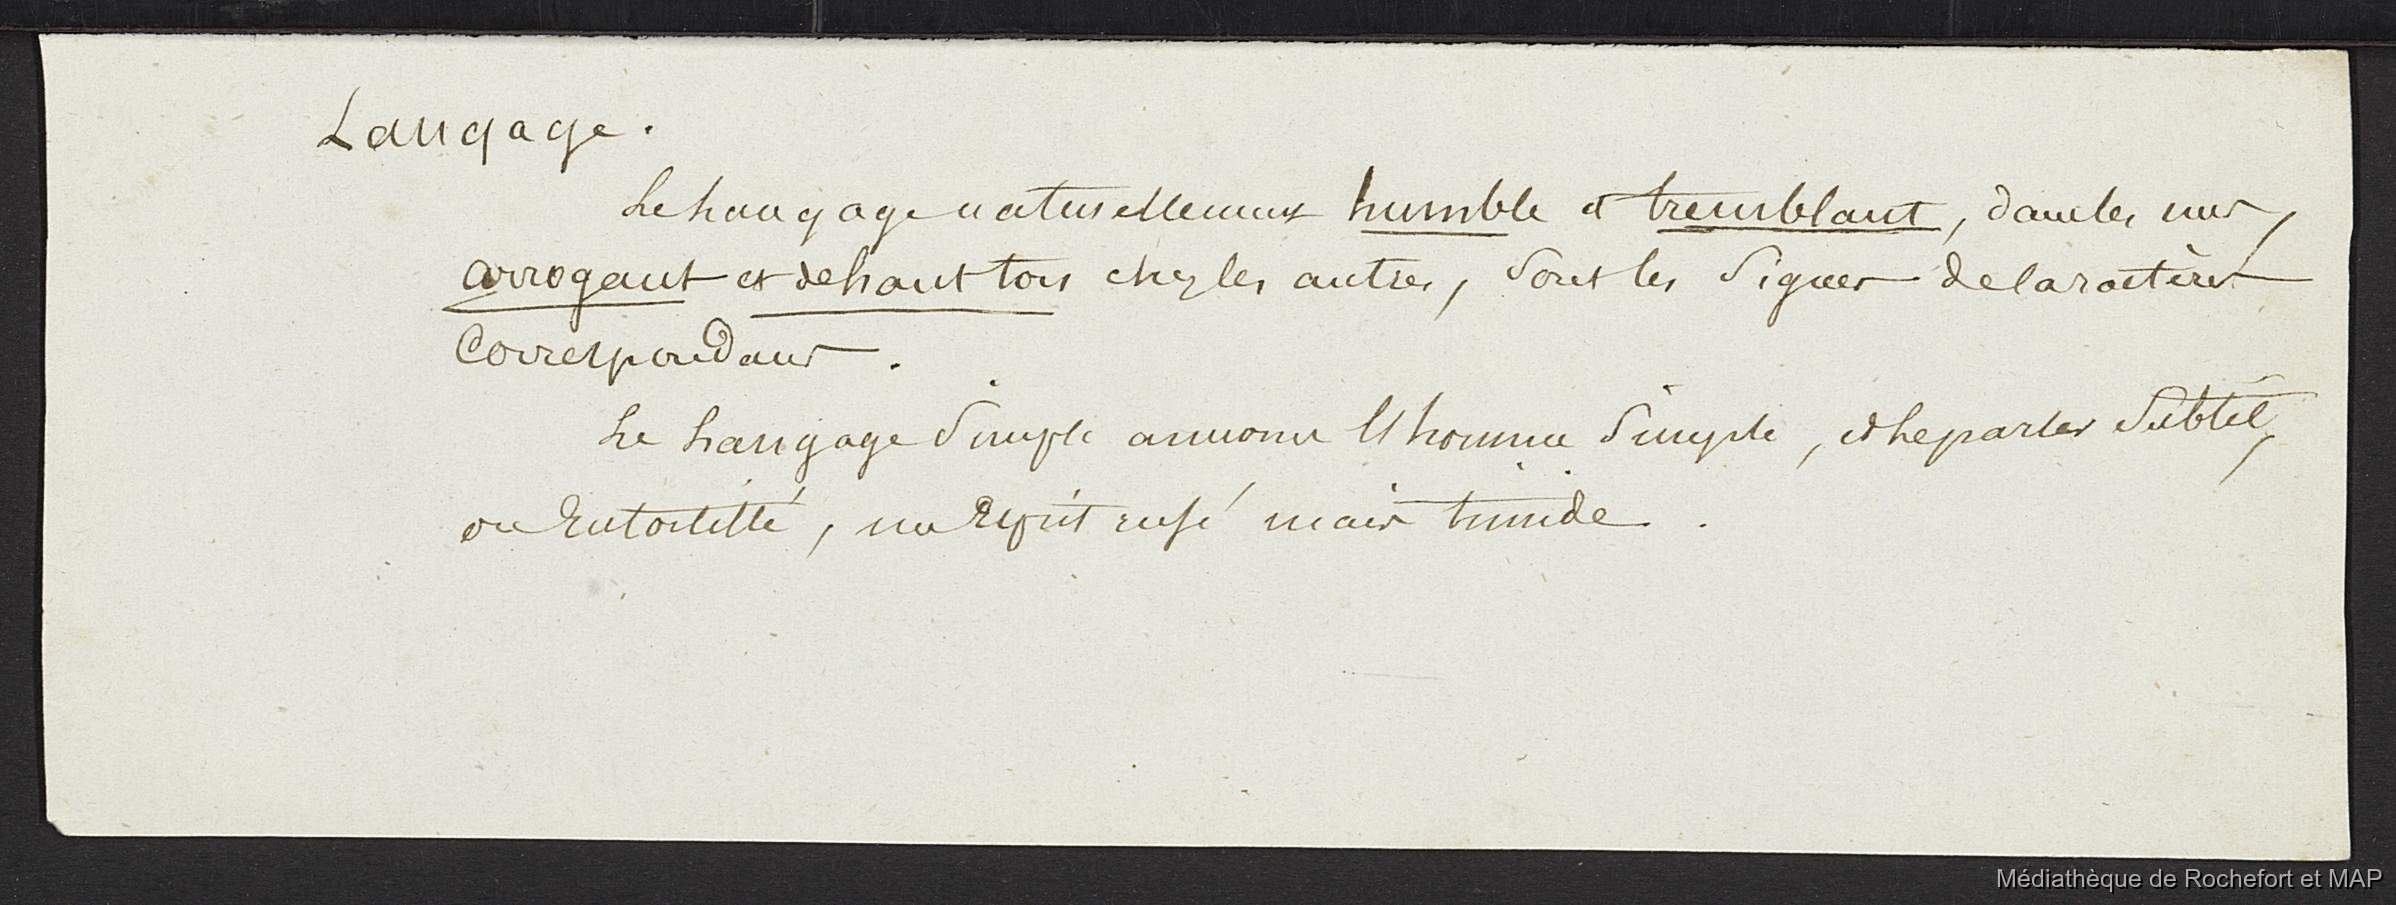 Langage.
Le Langage naturellement humble et tremblant, dans les uns,
arrogant et de haut ton chez les autres, sont les signes de Caractères
Correspondans.
Le Langage Simple annonce l'homme Simple, et le parler Subtil,
ou Entortillé, un Esprit rusé mais timide.
Médiathèque de Rochefort et MAP